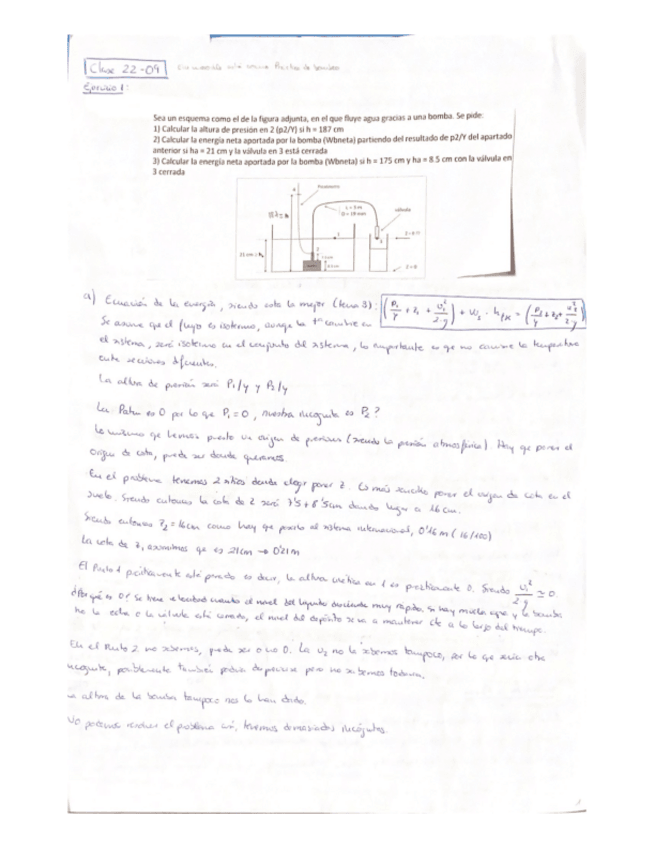 Clase 22-09
Ejercicio 1:
Sea un esquema como el de la figura adjunta, en el que fluye agua gracias a una bomba. Se pide:
1) Calcular la altura de presión en 2 (p2/Y) si h = 187 cm
2) Calcular la energía neta aportada por la bomba (Wbneta) partiendo del resultado de p2/Y del apartado
anterior si ha = 21 cm y la válvula en 3 está cerrada
3) Calcular la energía neta aportada por la bomba (Wbneta) si h = 175 cm y ha = 8 5 cm con la válvula en
3 cerrada
válvula
a) Ecuación de la energía, siendo esta la mejor (tema 3):
Se asume que el flujo es isotermo, aunque la Tª cambie en
el sistema, será isotermo en el conjunto del sistema, lo importante es que no cambie la temperatura
entre secciones diferentes.
La altura de presión será P1/γ y P2/γ
La Patm es 0 por lo que P1 = 0, nuestra incógnita es P2?
Lo mismo que hemos puesto un origen de presiones (siendo la presión atmosférica). Hay que poner el
origen de cota, puede ser donde queramos.
En el problema tenemos 2 sitios donde elegir poner Z. Lo más sencillo poner el origen de cota en el
suelo. Siendo entonces la cota de 2 será 7'5 + 8'5 cm dando lugar a 16 cm.
Siendo entonces Z2 = 16 cm como hay que pasarlo al sistema internacional, 0'16 m (16/100)
La cota de 1, asumimos que es 21 cm → 0'21 m
El Punto 1 prácticamente está parado es decir, la altura cinética en 1 es prácticamente 0. Siendo
¿Por qué es 0? Se tiene velocidad cuando el nivel del líquido desciende muy rápido, si hay mucha agua y la bomba
no la echa o la válvula está cerrada, el nivel del depósito se va a mantener cte a lo largo del tiempo.
En el Punto 2 no sabemos, puede ser o no 0. La U2 no la sabemos tampoco, por lo que sería otra
incógnita, posiblemente también podría despreciarse pero no sabemos todavía.
altura de la bomba tampoco nos la han dado.
No podemos resolver el problema así, tenemos demasiadas incógnitas.